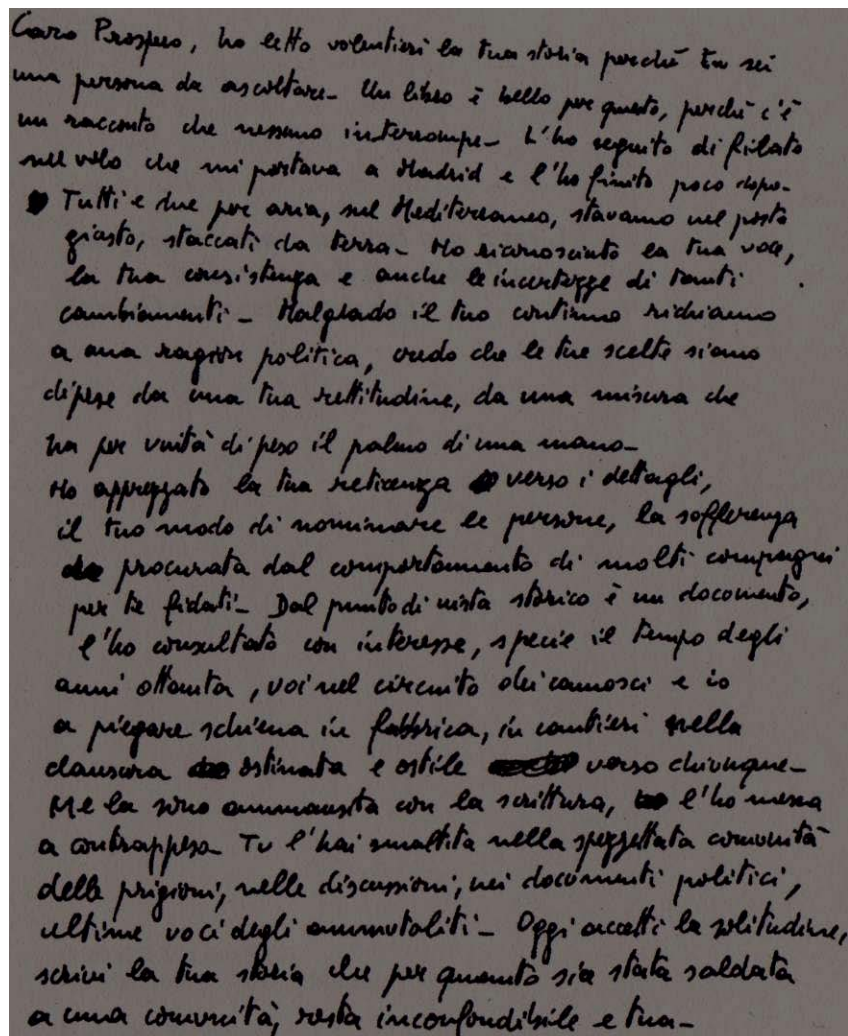 Caro Prospero, ho letto volentieri la tua storia perché tu sei
una persona da ascoltare_ Un libro è bello per questo, perché c'è
un racconto che nessuno interrompe_ L'ho seguito di filato
nel volo che mi portava a Madrid e l'ho finito poco dopo_
Tutti e due per aria, sul Mediterraneo, stavamo nel posto
giusto, staccati da terra_ Ho riconosciuto la tua voce,
la tua consistenza e anche le incertezze di tanti
cambiamenti_ Malgrado il tuo continuo richiamo
a una ragione politica, credo che le tue scelte siano
dipese da una tua rettitudine, da una misura che
ha per unità di peso il palmo di una mano_
Ho apprezzato la tua reticenza verso i dettagli,
il tuo modo di nominare le persone, la sofferenza
procurata dal comportamento di molti compagni
per te fidati_ Dal punto di vista storico è un documento,
l'ho consultato con interesse, specie il tempo degli
anni ottanta, voi nel circuito dei camosci e io
a piegare schiena in fabbrica, in cantieri nella
clausura ostinata e ostile verso chiunque_
Me la sono ammansita con la scrittura, l'ho messa
a contrappeso_ Tu l'hai smaltita nella spezzettata comunità
delle prigioni, nelle discussioni, nei documenti politici,
ultime voci degli ammutoliti_ Oggi accetti la solitudine,
scrivi la tua storia che per quanto sia stata saldata
a una comunità, resta inconfondibile e tua_